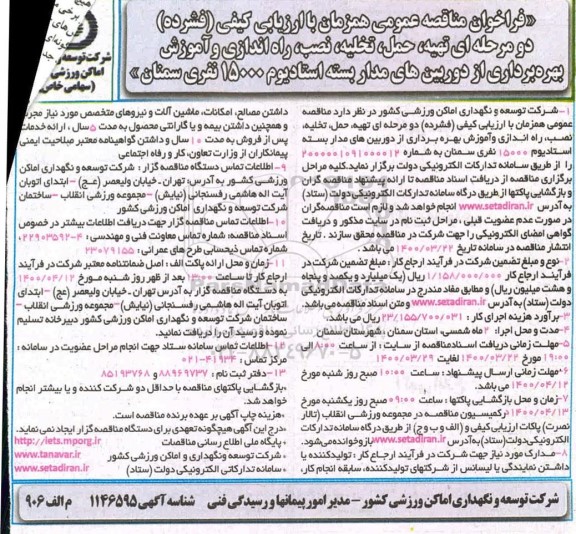 شرکت توسعه و
اماکن ورزشی
(سهامی خاص)
«فراخوان مناقصه عمومی همزمان با ارزیابی کیفی (فشرده)
دو مرحله ای تهیه، حمل، تخلیه، نصب، راه اندازی و آموزش
بهره‌برداری از دوربین های مدار بسته استادیوم ۱۵۰۰۰ نفری سمنان»
۱- شرکت توسعه و نگهداری اماکن ورزشی کشور در نظر دارد مناقصه
عمومی همزمان با ارزیابی کیفی (فشرده) دو مرحله ای تهیه، حمل، تخلیه،
نصب، راه اندازی و آموزش بهره برداری از دوربین های مدار بسته
استادیوم ۱۵۰۰۰ نفری سمنان به شماره
را از طریق سامانه تدارکات الکترونیکی دولت برگزار نماید. کلیه مراحل
برگزاری مناقصه از دریافت اسناد مناقصه تا ارائه پیشنهاد مناقصه گران
و بازگشایی پاکتها از طریق درگاه سامانه تدارکات الکترونیکی دولت (ستاد)
به آدرس www.setadiran.ir انجام خواهد شد و لازم است مناقصه‌گران
در صورت عدم عضویت قبلی، مراحل ثبت نام در سایت مذکور و دریافت
گواهی امضای الکترونیکی را جهت شرکت در مناقصه محقق سازند. تاریخ
انتشار مناقصه در سامانه تاریخ ۱۴۰۰/۰۳/۲۲ می باشد.
۲- نوع و مبلغ تضمین شرکت در فرآیند ارجاع کار: مبلغ تضمین شرکت در
فرآیند ارجاع کار ۱/۱۵۸/۰۰۰/۰۰۰ ریال (یک میلیارد و یکصد و پنجاه
و هشت میلیون ریال) و مطابق مفاد مندرج در سامانه تدارکات الکترونیکی
دولت (ستاد) به آدرس www.setadiran.ir و متن اسناد مناقصه می باشد.
۳- برآورد هزینه اجرای کار: ۲۳/۱۵۵/۷۰۰/۰۳۱ ریال می باشد
۴- مدت و محل اجرا: ۲ ماه شمسی، استان سمنان، شهرستان سمنان
۵- مهلت زمانی دریافت اسناد مناقصه از سایت: از ساعت ۸:۰۰ الی
۱۹:۰۰ مورخ ۱۴۰۰/۰۳/۲۲ لغایت ۱۴۰۰/۰۳/۲۹
۶- مهلت زمانی ارسال پیشنهاد: ساعت ۱۰:۰۰ صبح روز شنبه مورخ
۱۴۰۰/۰۴/۱۲ می باشد.
۷- زمان و محل بازگشایی پاکتها: ساعت ۰۹:۰۰ صبح روز یکشنبه مورخ
۱۴۰۰/۰۴/۱۳ در کمیسیون مناقصه در مجموعه ورزشی انقلاب (تالار
نصرت) پاکات ارزیابی کیفی و (الف و ب و ج) از طریق درگاه سامانه تدارکات
الکترونیکی دولت (ستاد) به آدرس www.setadiran.ir بازوخوانده می‌شود.
۸- مدارک مورد نیاز جهت شرکت در فرآیند ارجاع کار: تولیدکننده یا
داشتن نمایندگی یا لیسانس از شرکتهای تولیدکننده، سابقه انجام کار،
داشتن مصالح، امکانات، ماشین آلات و نیروهای متخصص مورد نیاز مجرب
و همچنین داشتن بیمه و یا گارانتی محصول به مدت ۵ سال، ارائه خدمات
پس از فروش به مدت ۱۰ سال و داشتن گواهینامه معتبر صلاحیت ایمنی
پیمانکاران از وزارت تعاون، کار و رفاه اجتماعی
۹- اطلاعات تماس دستگاه مناقصه گزار: شرکت توسعه و نگهداری اماکن
ورزشی کشور به آدرس: تهران- خیابان ولیعصر (عج) - ابتدای اتوبان
آیت اله هاشمی رفسنجانی (نیایش) - مجموعه ورزشی انقلاب - ساختمان
شرکت توسعه و نگهداری اماکن ورزشی کشور
۱۰- اطلاعات تماس مناقصه گزار جهت دریافت اطلاعات بیشتر در خصوص
اسناد مناقصه: شماره تماس معاونت فنی و مهندسی: ۴-۰۲۲۹۰۳۵۹۲
شماره تماس ذیحسابی طرح های عمرانی: ۲۳۰۲۹۱۵۵
۱۱- زمان و محل ارائه پاکت الف: اصل ضمانتنامه معتبر شرکت در فرآیند
ارجاع کار تا ساعت بعد از ظهر روز شنبه مورخ ۱۴۰۰/۰۴/۱۲
به دستگاه مناقصه گزار به آدرس تهران- خیابان ولیعصر (عج) - ابتدای
اتوبان آیت اله هاشمی رفسنجانی (نیایش) - مجموعه ورزشی انقلاب -
ساختمان شرکت توسعه و نگهداری اماکن ورزشی کشور دبیرخانه تسلیم
نموده و رسید آن را دریافت نمایند.
۱۲- اطلاعات تماس سامانه ستاد جهت انجام مراحل عضویت در سامانه:
مرکز تماس: ۰۲۱-۴۱۹۳۴
۱۳- دفتر ثبت نام: ۸۸۹۶۹۷۳۷ و ۸۵۱۹۳۷۶۸
*بازگشایی پاکتهای مناقصه با حداقل دو شرکت کننده و یا بیشتر انجام
خواهد شد.
*هزینه چاپ آگهی بر عهده برنده مناقصه است.
*درج این آگهی هیچگونه تعهدی برای دستگاه مناقصه گزار ایجاد نمی نماید.
* پایگاه ملی اطلاع رسانی مناقصات http://iets.mporg.ir
* شرکت توسعه ونگهداری و اماکن ورزشی کشور www.tanavar.ir
* سامانه تدارکاتی الکترونیکی دولت (ستاد) www.setadiran.ir
شرکت توسعه و نگهداری اماکن ورزشی کشور - مدیر امور پیمانها و رسیدگی فنی شناسه آگهی ۱۱۴۶۵۹۵ م الف ۹۰۶